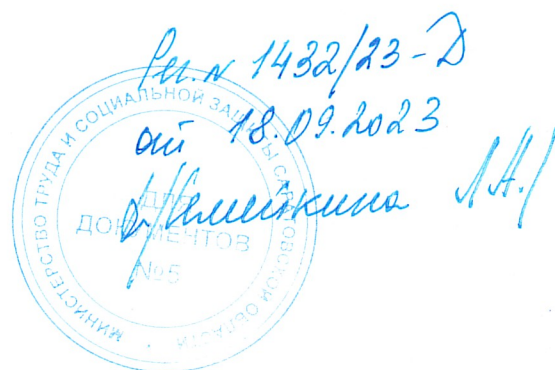 Рег. № 1432/23-Д
от 18.09.2023
МИНИСТЕРСТВО ТРУДА И СОЦИАЛЬНОЙ ЗАЩИТЫ САРАТОВСКОЙ ОБЛАСТИ
ДЛЯ
ДОКУМЕНТОВ
№5